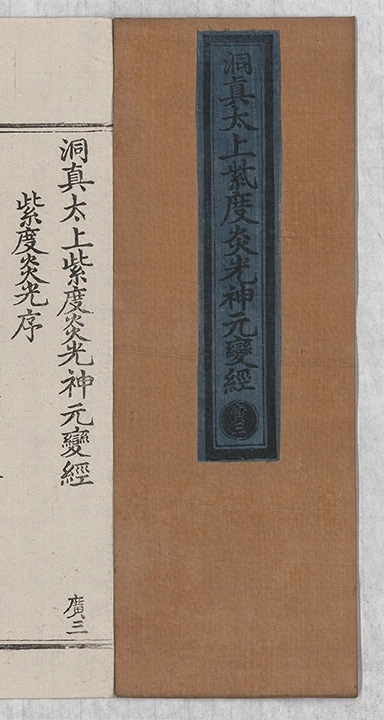 洞真太上紫度炎光神元變經
廣三
洞真太上紫度炎光神元變經
廣三
紫度炎光序